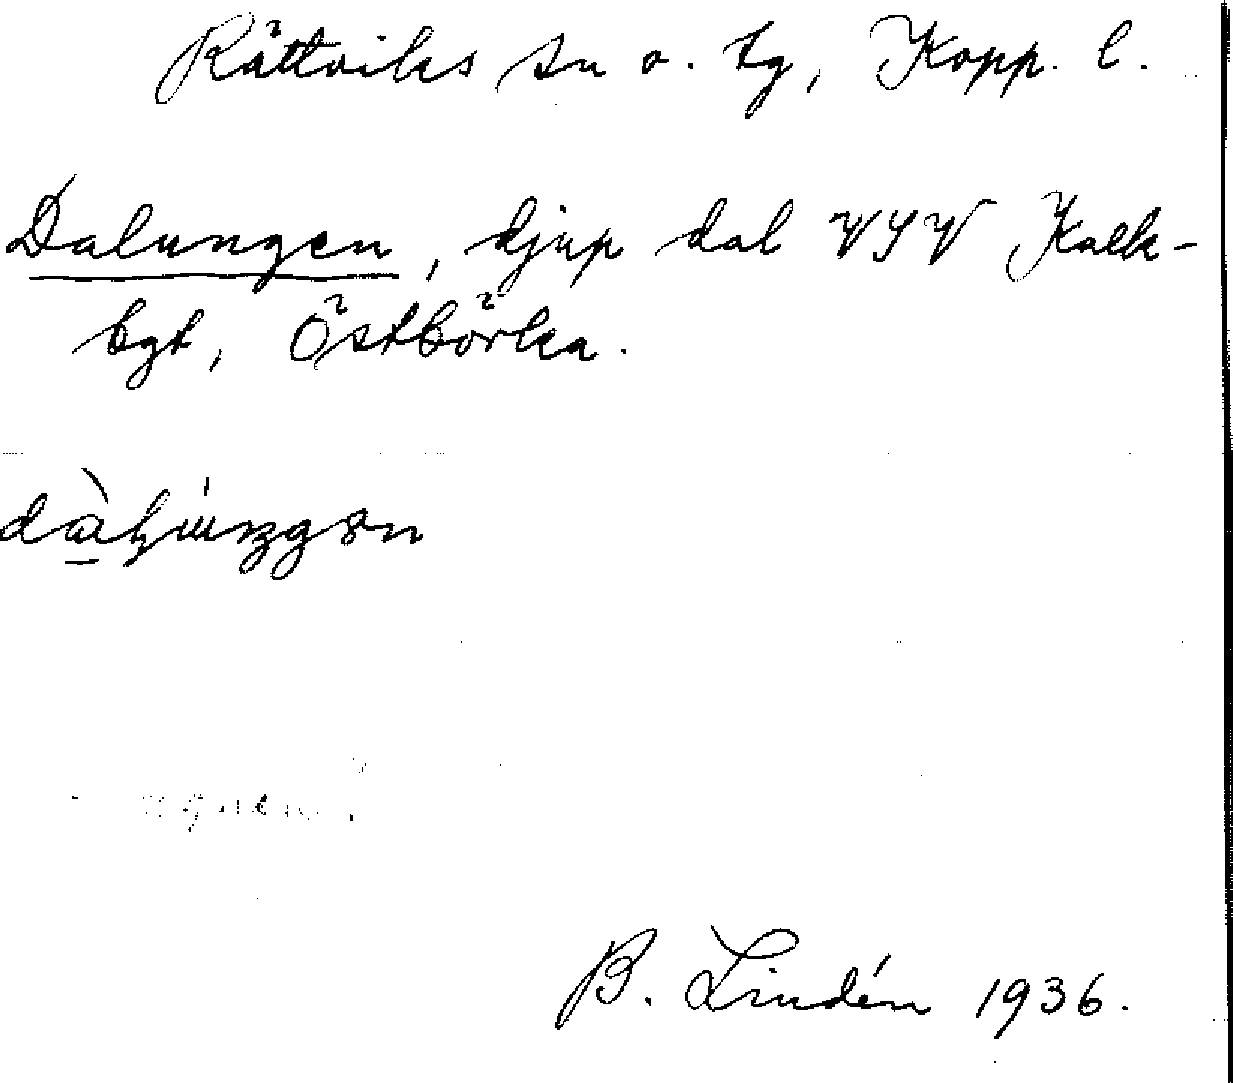 Rättviks sn o. tg, Kopp. l.
Dalungen, djup dal VSV Kalk-
bgt, Östbörka.
B. Lindén 1936.